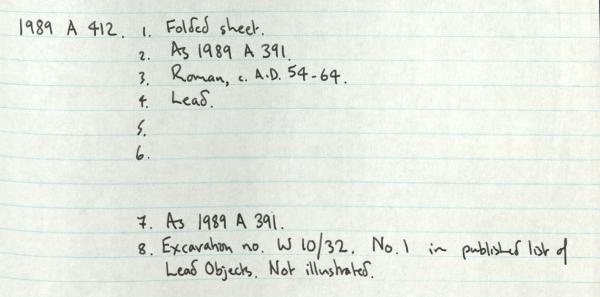 1989 A 412. 1. Folded sheet.
2. As 1989 A 391.
3. Roman, c. A.D. 54-64.
4. Lead.
5.
6.
7. As 1989 A 391.
8. Excavation no. W 10/32. No. 1 in published list of
Lead Objects. Not illustrated.